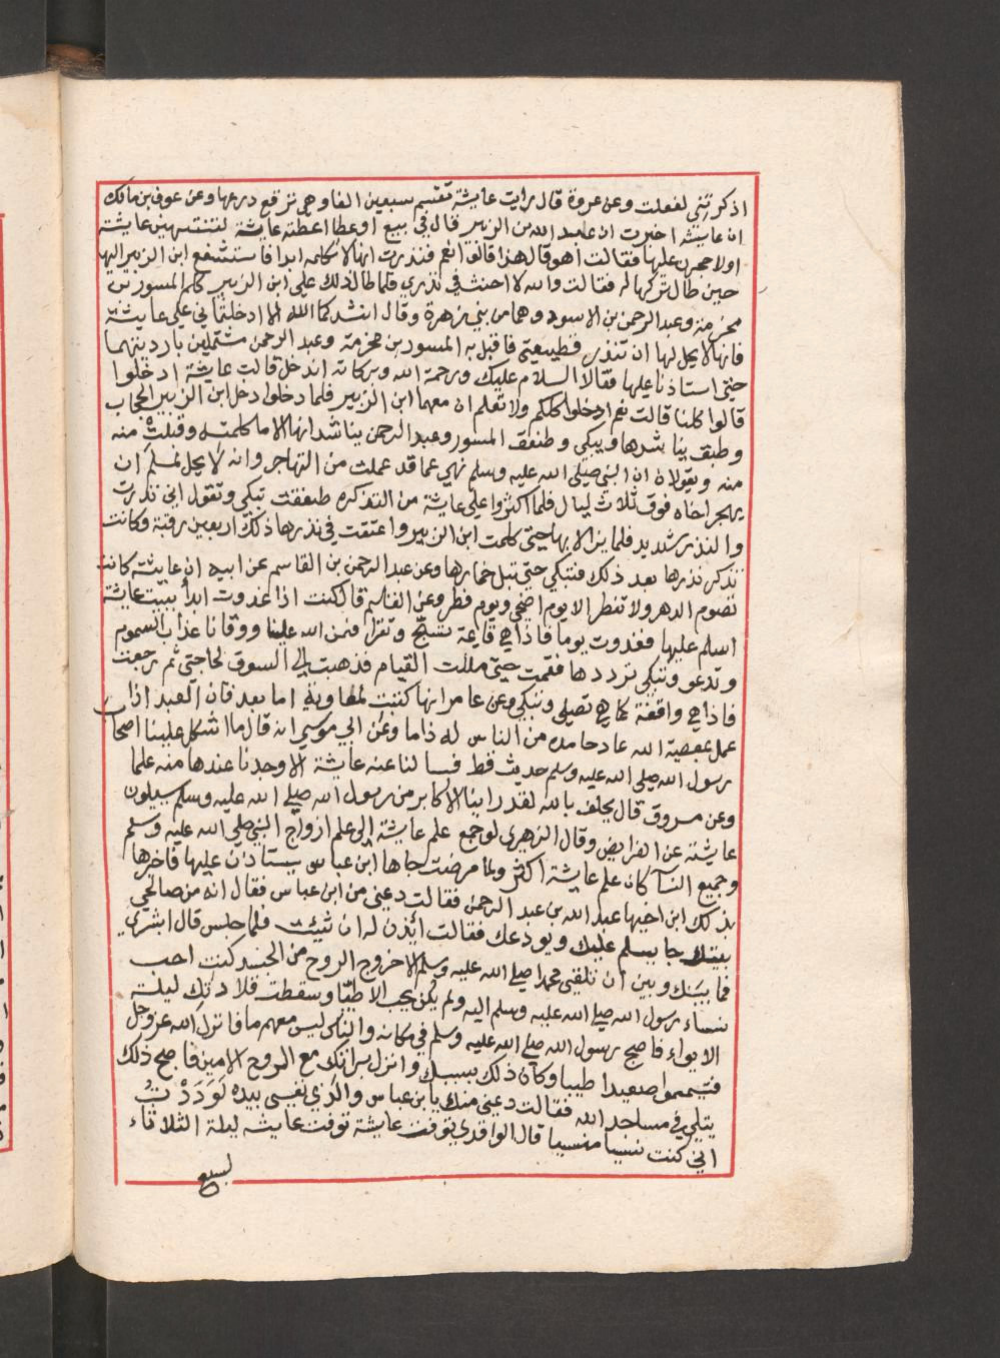 اذكرتني لفعلت وعن عروة قال رايت عايشة تقسم سبعين الفا وهي ترقع درعها وعن عوف بن مالك
ان عايشه اخبرت ان عبد الله بن الزبير قال في بيع او عطا اعطته عايشة لتنتهين عايشة
او لاحجرن عليها فقالت اهو قال هذا قالوا نعم فنذرت انها لا تكلمه ابدا فاستشفع ابن الزبير اليها
حين طال تركها له فقالت والله لا احنث في نذري فلما طال ذلك على ابن الزبير كلم المسور بن
مخرمة وعبد الرحمن بن الاسود وهما من بني زهرة وقال انشدكما الله الا ادخلتماني على عايشة
فانها لا يحل لها ان تنذر قطيعتي فاقبل به المسور بن مخرمة وعبد الرحمن مشتملين بارديتهما
حتى استاذنا عليها فقالا السلام عليك ورحمة الله وبركاته اندخل قالت عايشة ادخلوا
قالوا كلنا قالت نعم ادخلوا كلكم ولا تعلم ان معهما ابن الزبير فلما دخلوا دخل ابن الزبير الحجاب
وطبق يناشدها ويبكي وطفق المسور وعبد الرحمن يناشدانها الا ما كلمته وقبلت منه
منه ويقولان ان النبي صلى الله عليه وسلم نهى عما قد عملت من التهاجر وانه لا يحل لمسلم ان
يهجر اخاه فوق ثلاث ليال فلما اكثروا على عايشة من التذكره طفقت تبكي وتقول اني نذرت
والنذر شديد فلم يزالا بها حتى كلمت ابن الزبير واعتقت في نذرها ذلك اربعين رقبة وكانت
تذكر نذرها بعد ذلك فتبكي حتى تبل خمارها وعن عبد الرحمن بن القاسم عن ابيه ان عايشة كانت
تصوم الدهر ولا تفطر الا يوم اضحى ويوم فطر وعن القاسم قال كنت اذا غدوت ابدأ ببيت عايشة
اسلم عليها فغدوت يوما فاذا هي قايمة تسبح وتقرا فمن الله علينا ووقانا عذاب السموم
وتدعو وتبكي ترددها فقمت حتى مللت القيام فذهبت الى السوق لحاجتي ثم رجعت
فاذا هي واقفة كما هي تصلي وتبكي وعن عامر انها كتبت لمعاوية اما بعد فان العبد اذا
عمل بمعصية الله عاد حامده من الناس له ذاما وعن ابي موسى انه قال ما اشكل علينا اصحاب
رسول الله صلى الله عليه وسلم حديث قط فسالنا عنه عايشة الا وجدنا عندها منه علما
وعن مسروق قال يحلف بالله لقد راينا الاكابر من رسول الله صلى الله عليه وسلم يسيلون
عايشته عن الفرايض وقال الزهري لو جمع علم عايشة الى علم ازواج النبي صلى الله عليه وسلم
وجميع النسآ كان علم عايشة اكثر ولما مرضت جاها ابن عباس يستاذن عليها فاخبرها
بذلك ابن اخيها عبد الله بن عبد الرحمن فقالت دعني من ابن عباس فقال انه من صالحي
بنيك جا يسلم عليك ويودعك فقالت ائذن له ان شيت فلما جلس قال ابشري
فما بينك وبين ان تلقي محمدا صلى الله عليه وسلم الا خروج الروح من الجسد كنت احب
نساء رسول الله صلى الله عليه وسلم اليه ولم يكن يحب الا طيبا وسقطت قلادتك ليلة
الابواء فاصبح رسول الله صلى الله عليه وسلم في مكانه والناس ليس معهم ما فانزل الله عز وجل
فتيمموا صعيدا طيبا وكان ذلك بسببك وانزل براتك مع الروح الامين فاصبح ذلك
يتلى في مساجد الله فقالت دعني منك يابن عباس والذي نفسي بيده لَوَدَدْتُ
اني كنت نسيا منسيا قال الواقدي توفت عايشة توفت عايشه ليلة الثلاثاء
لسبع